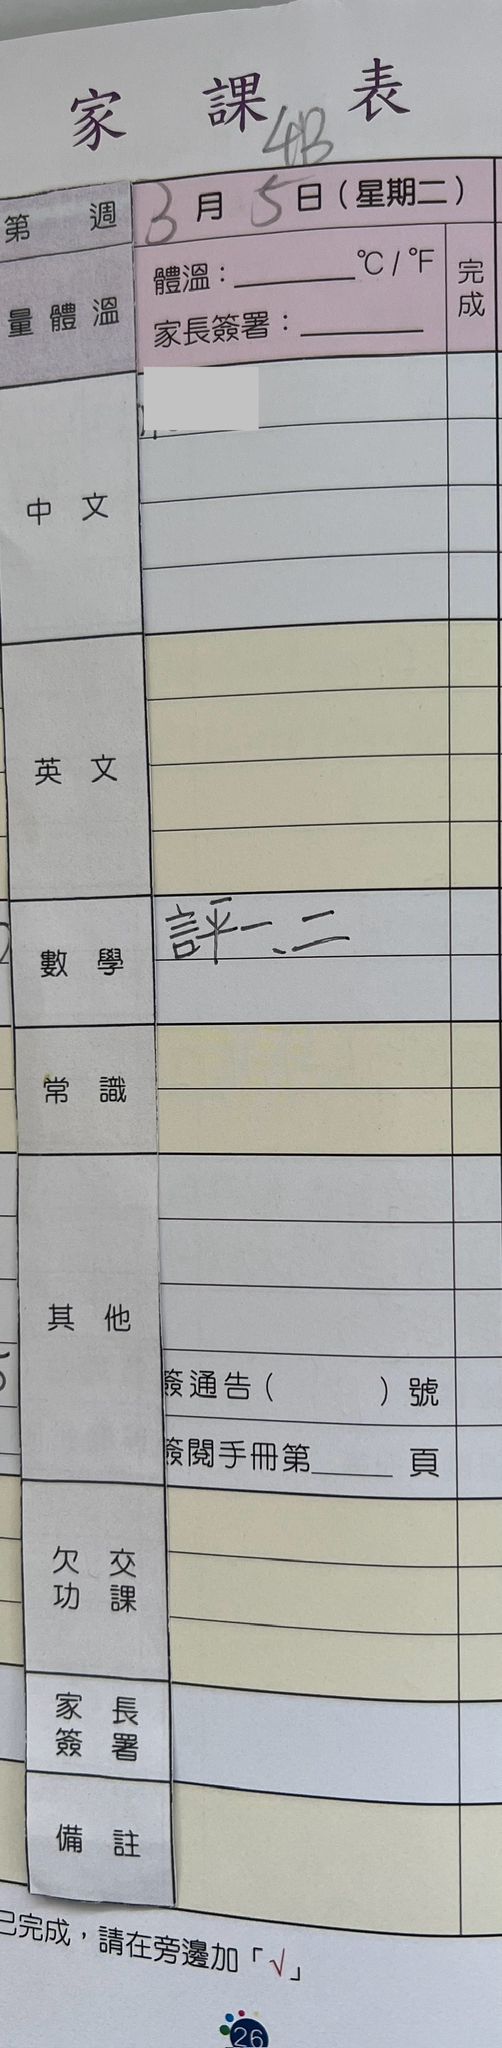 家課表
4B
第 週 3月5日(星期二)
量體溫 體溫:______°C/°F 完成
家長簽署:______
中文
英文
數學 評一、二
常識
其他
簽通告( )號
簽閱手冊第____頁
欠交功課
家長簽署
備註
已完成,請在旁邊加「√」
26